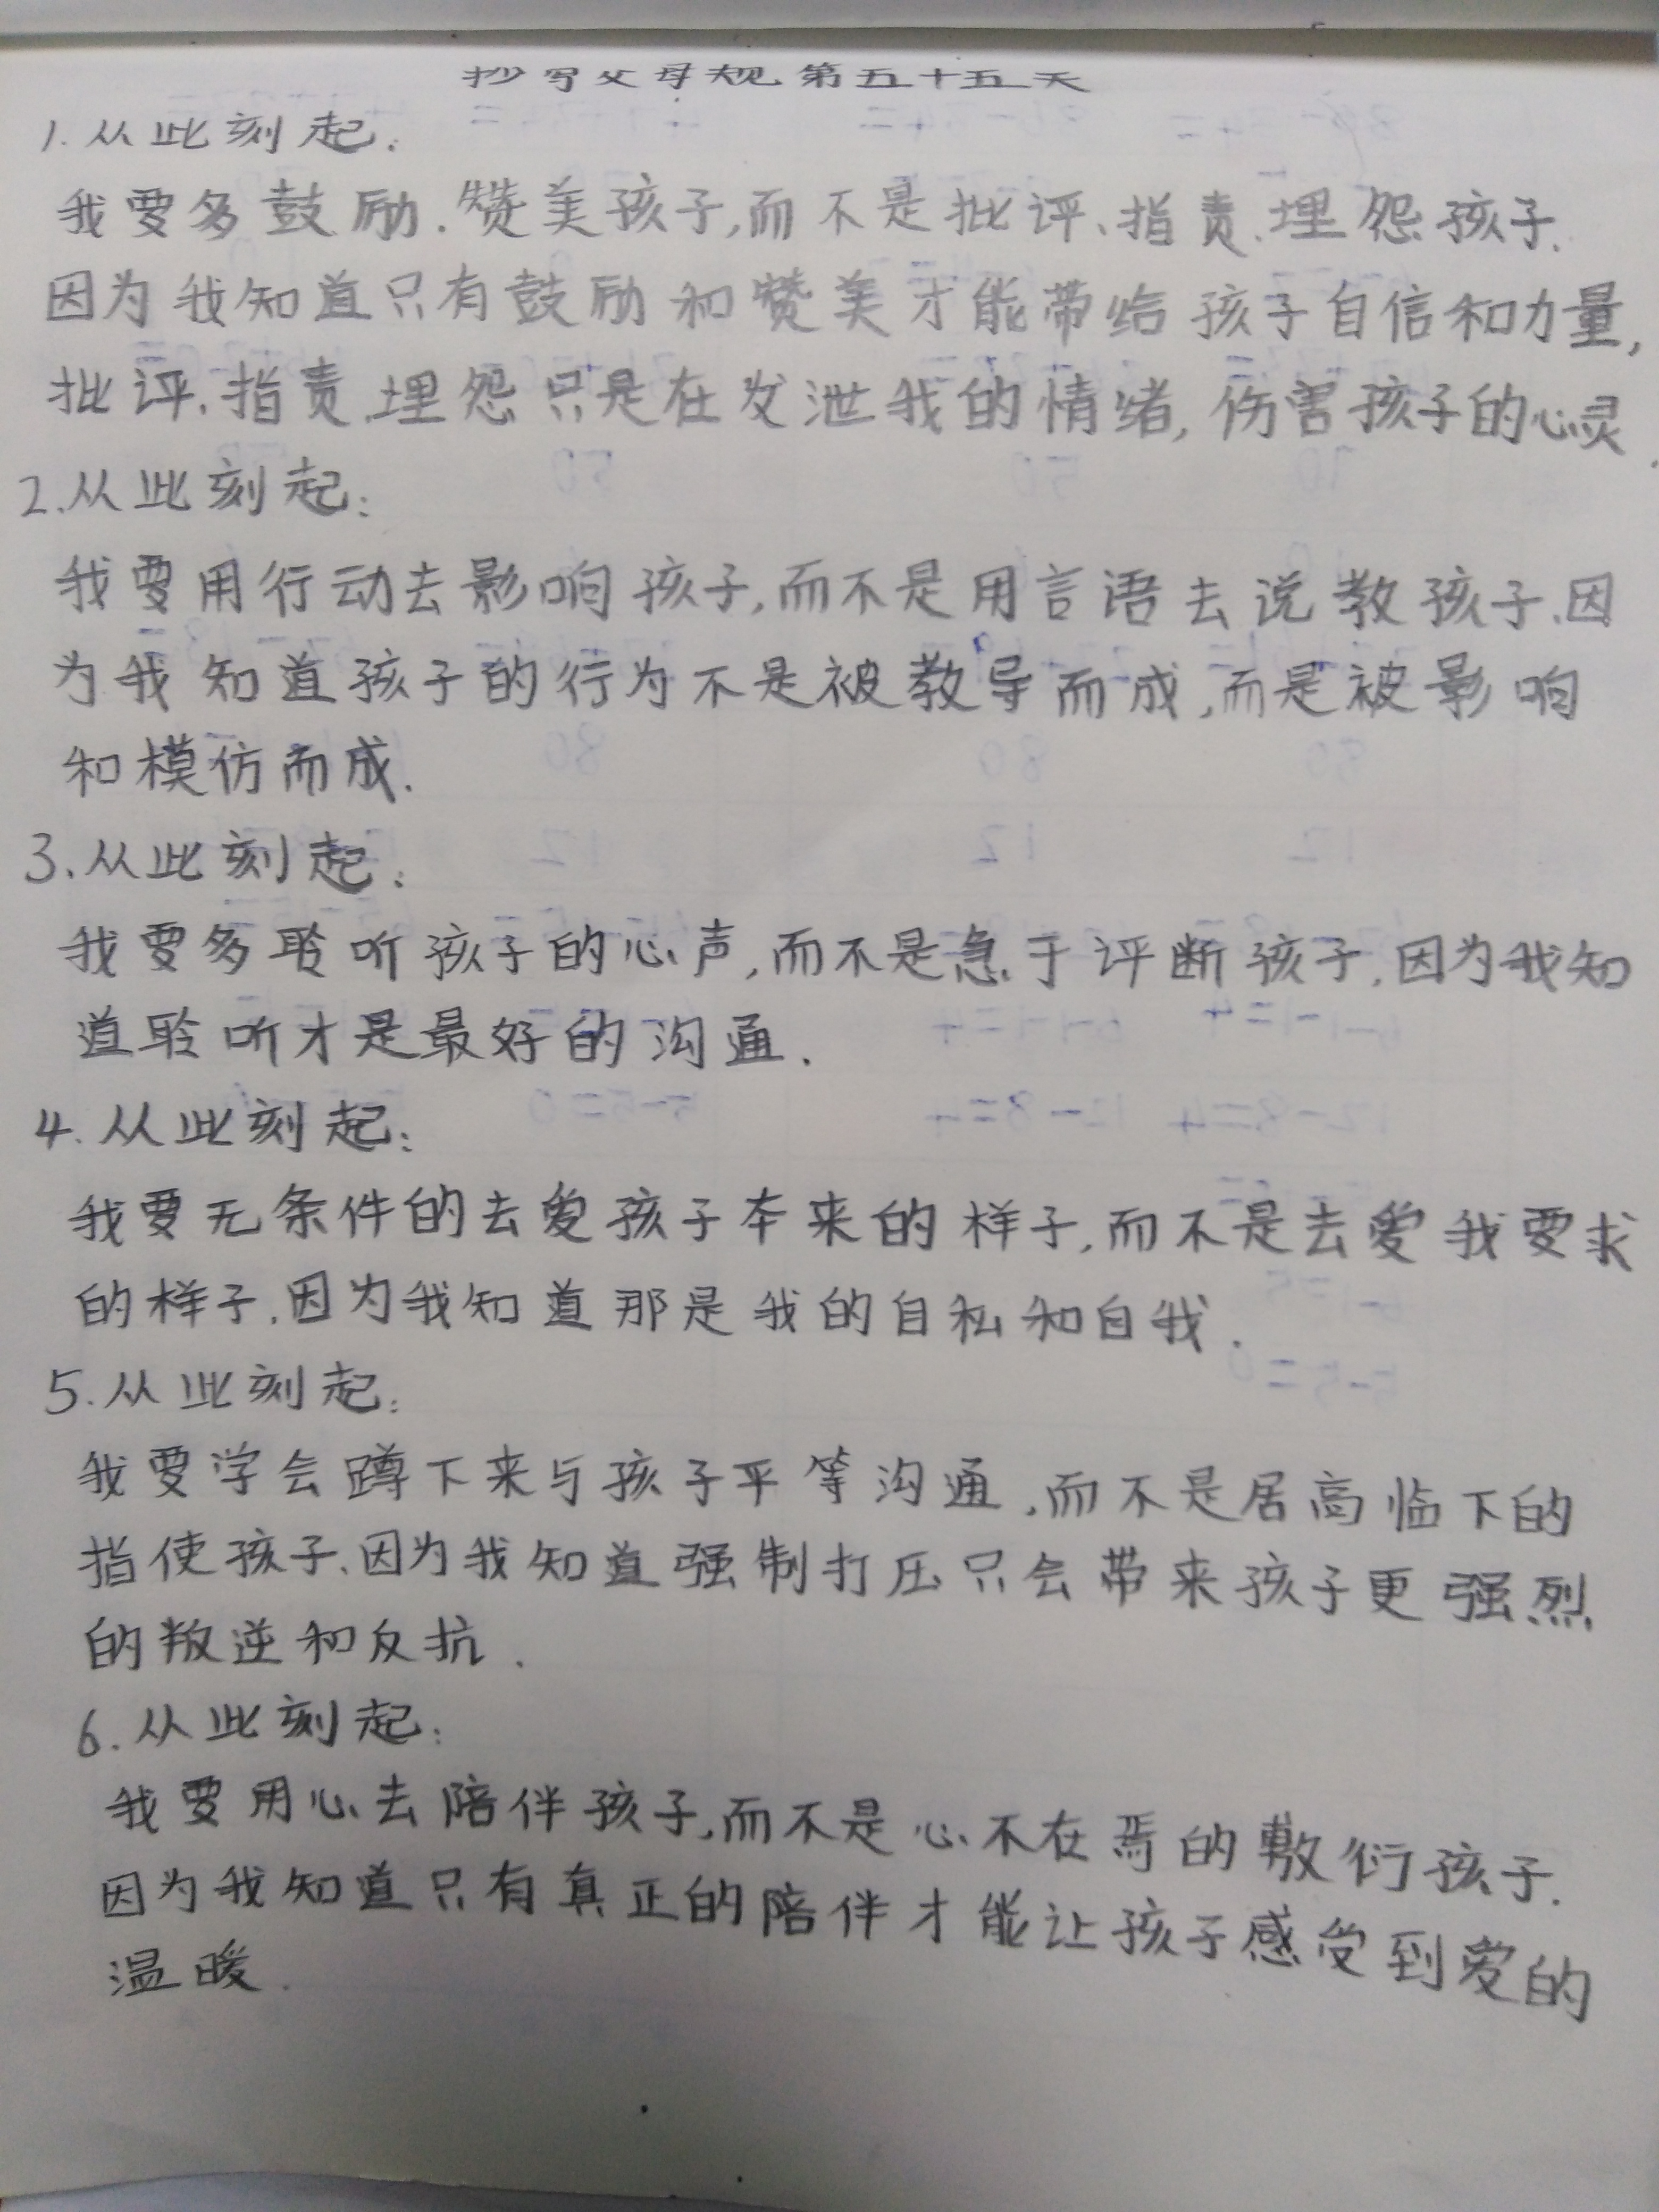 抄写父母规第五十五天
1.从此刻起:
我要多鼓励.赞美孩子,而不是批评、指责.埋怨孩子.
因为我知道只有鼓励和赞美才能带给孩子自信和力量,
批评.指责.埋怨只是在发泄我的情绪,伤害孩子的心灵.
2.从此刻起:
我要用行动去影响孩子,而不是用言语去说教孩子.因
为我知道孩子的行为不是被教导而成,而是被影响
和模仿而成.
3.从此刻起:
我要多聆听孩子的心声,而不是急于评断孩子.因为我知
道聆听才是最好的沟通.
4.从此刻起:
我要无条件的去爱孩子本来的样子,而不是去爱我要求
的样子.因为我知道那是我的自私和自我.
5.从此刻起:
我要学会蹲下来与孩子平等沟通,而不是居高临下的
指使孩子.因为我知道强制打压只会带来孩子更强烈
的叛逆和反抗.
6.从此刻起:
我要用心去陪伴孩子,而不是心不在焉的敷衍孩子.
因为我知道只有真正的陪伴才能让孩子感受到爱的
温暖.